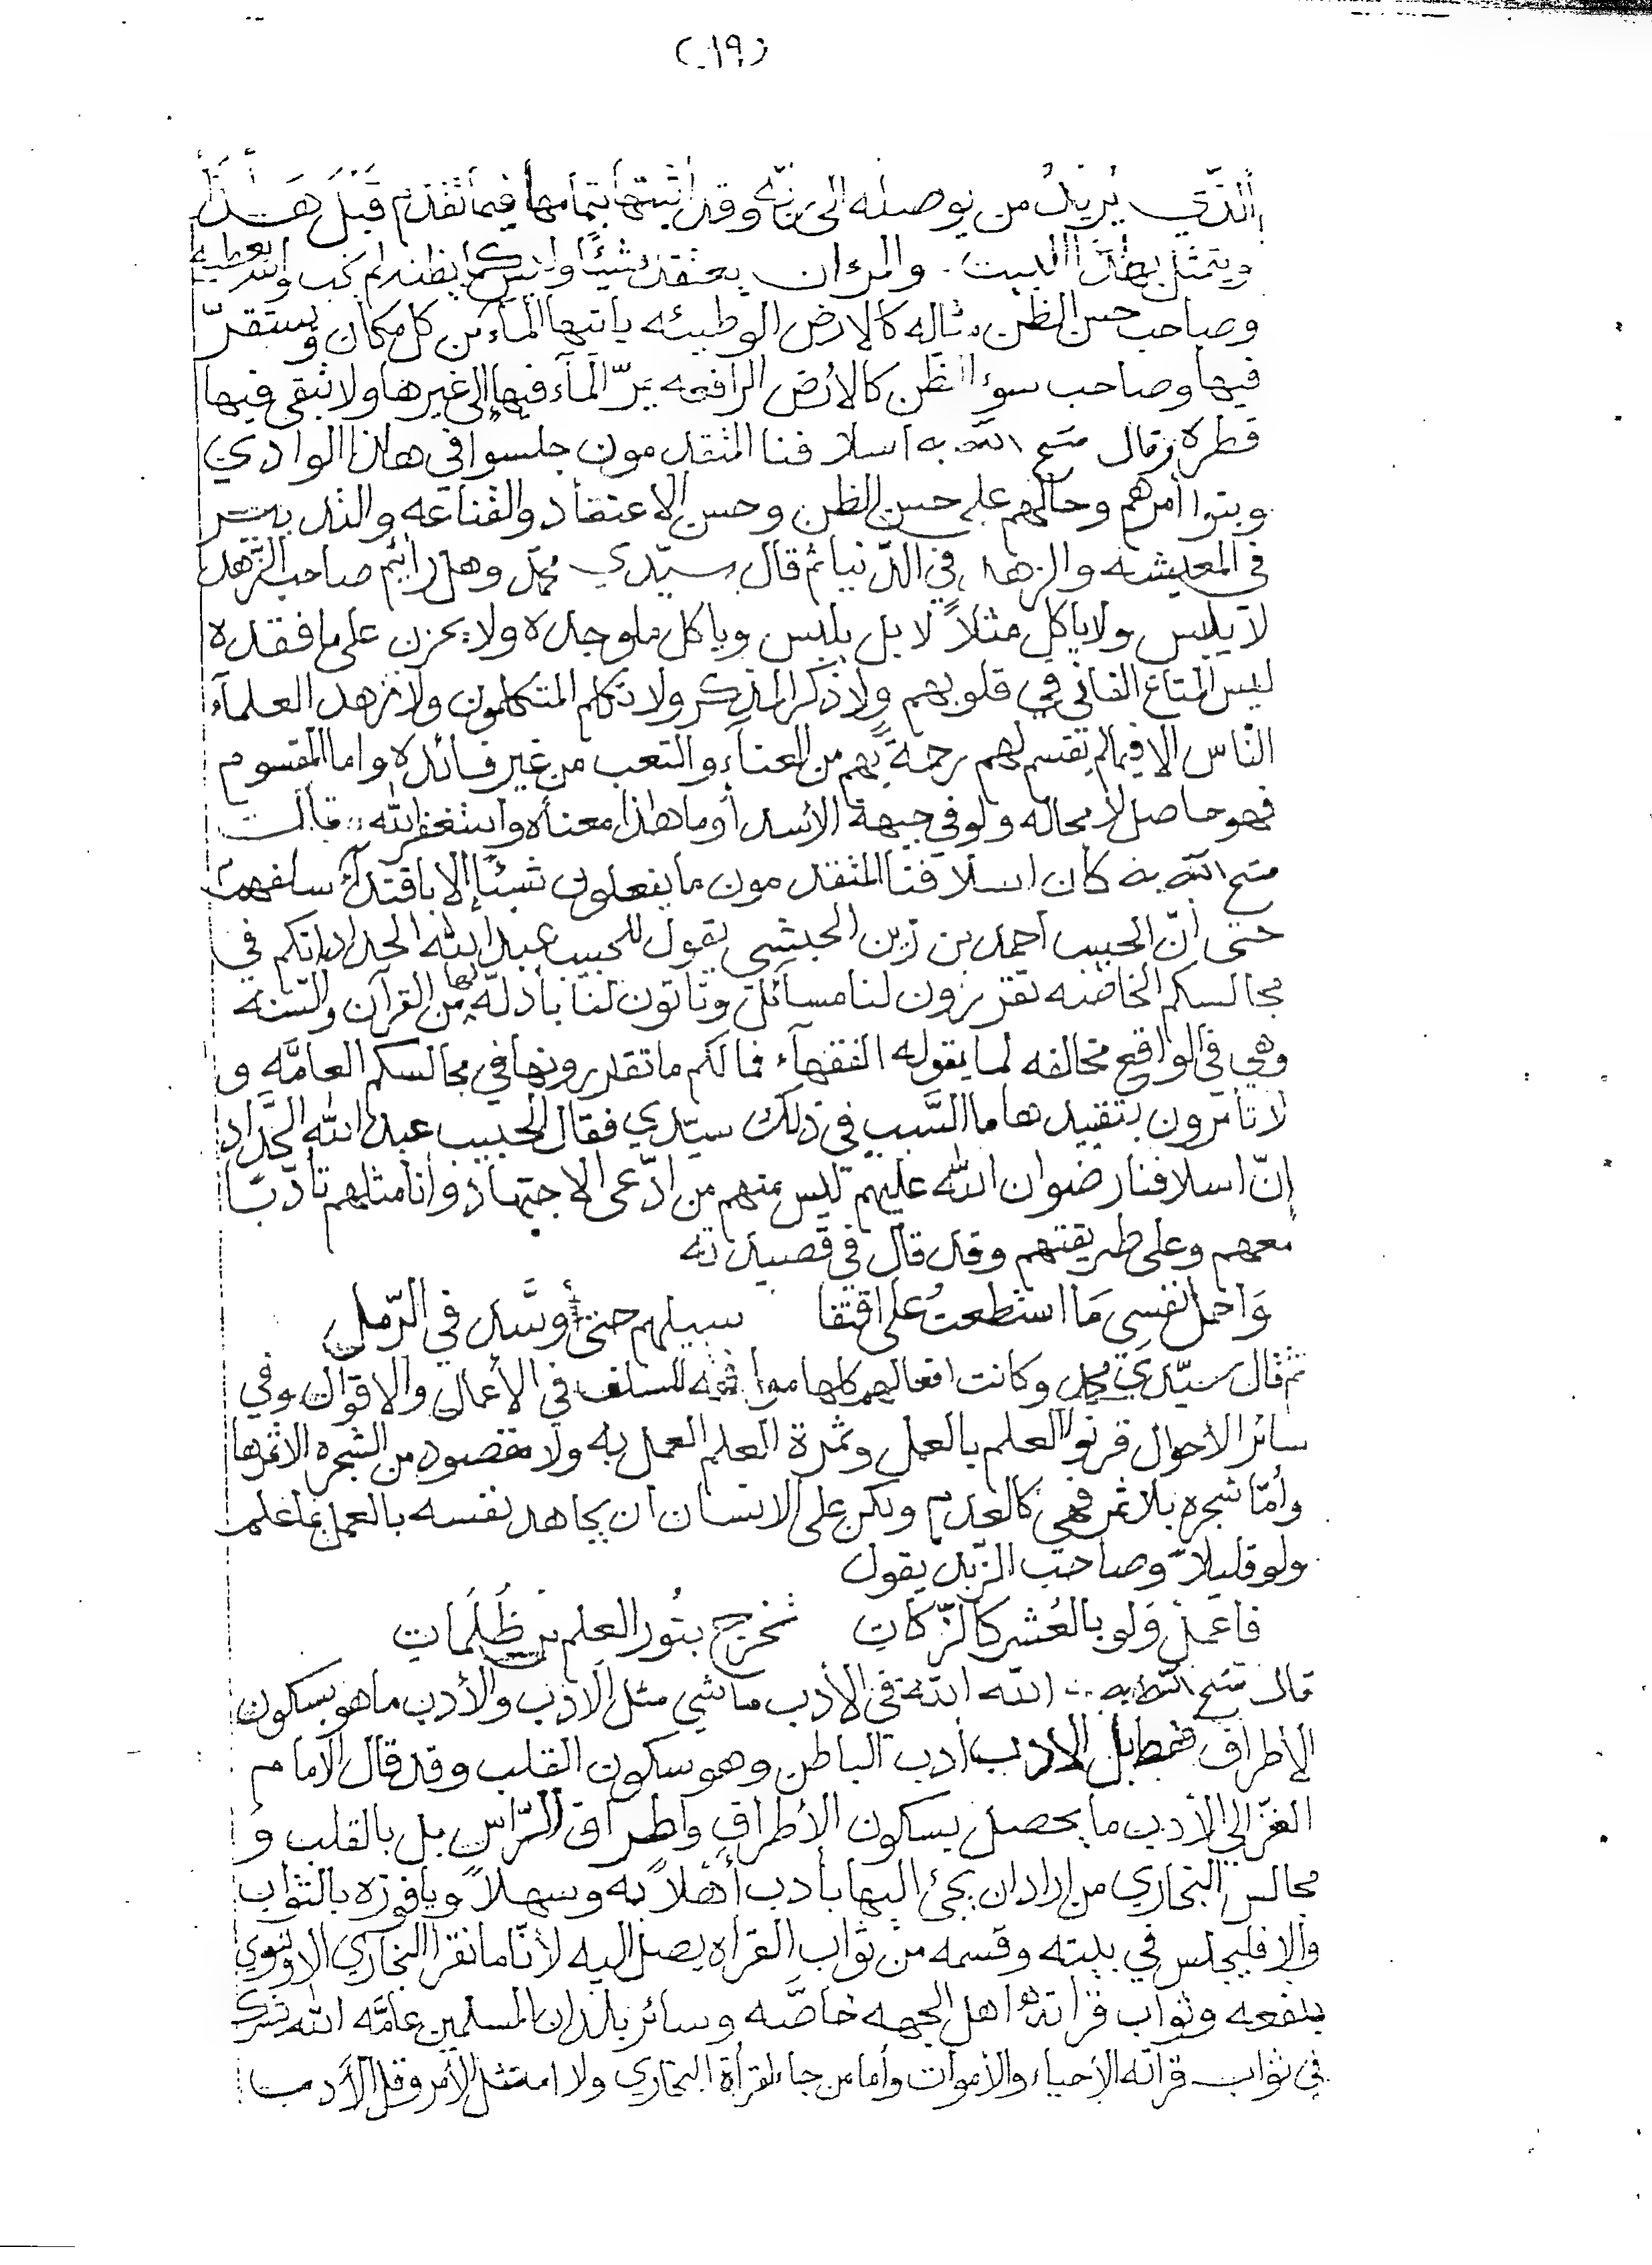 (١٩)
الَّذي يُريدُ من يوصله الى ربّه وقد أثبتها بتمامها فيما تقدم قَبْلَ هَذَا
ويتمثل بهذا البيت . والمرء ان يعتقد شيئًا وليس كما يظنه لم يخب والله يعطيه
وصاحب حسن الظن مثاله كالارض الوطيئه يأتيها المآء من كل مكان ويستقرّ
فيها وصاحب سوء الظن كالأرض الرافعه يمرّ المآء فيها إلى غيرها ولا تبقى فيها
قطرة وقال متع الله به أسلافنا المتقدمون جلسوا في هاذا الوادي
وبنوا أمرهم وحالهم على حسن الظن وحسن الاعتقاد والقناعه والتدبير
في المعيشه والزهد في الدّنيا ثم قال سيّدي محمّد وهل رايتم صاحب الزهد
لا يلبس ولا ياكل مثلاً لا بل يلبس وياكل ما وجده ولا يحزن على ما فقده
ليس المتاع الفاني في قلوبهم ولا ذكر المذكر ولا تكلم المتكلمون ولا زهد العلمآء
النّاس الا فيما لم يقسم لهم رحمةً بهم من العنآء والتعب من غير فائده واما المقسوم
فهو حاصل لا محاله ولو في جبهة الأسد أو ما هذا معناه وأستغفر الله .. قالت
متع الله به كان اسلافنا المتقدمون ما يفعلون شيئًا إلا باقتدآء سلفهم
حتى أنّ الحبيب أحمد بن زين الحبشي يقول للحبيب عبد الله الحداد انكم في
مجالسكم الخاصّه تقررون لنا مسآئل وتأتون لنا بأدلّه لها من القرآن والسّنه
وهي في الواقع مخالفه لما يقوله الفقهآء فما لكم ما تقدرونها في مجالسكم العامَّه و
لا تأمرون بتقييدها ما السَّبب في ذلك سيّدي فقال الحبيب عبد الله الحدّاد
إنّ اسلافنا رضوان الله عليهم ليس منهم من ادّعى الاجتهاد وأنا مثلهم تأدّبًا
معهم وعلى طريقتهم وقد قال في قصيدته
وَاحمل نفسِي مَا استطعتُ على اقتفا سبيلهم حتى أُوسَّد في الرّمل
ثم قال سيّدي محمد وكانت افعالهم كلها مواثبه للسلف في الأعمال والاقوال وفي
سائر الأحوال قرنوا العلم بالعمل وثمرة العلم العمل به ولا مقصود من الشجره الا ثمرها
وأمّا شجره بلا ثمر فهي كالعدم ولكن على الانسان أن يجاهد نفسه بالعمل بما علم
ولو قليلاً وصاحب الزّبد يقول
فاعمل وَلو بالعُشر كالزّكاةِ تخرج بنُور العلم من ظُلَمات
قال متع الله به .. الله الله في الأدب ما شي مثل الأدب والأدب ما هو بسكون
الأطراف فقط بل الادب أدب الباطن وهو سكون القلب وقد قال الامام
الغزّالي الأدب ما يحصل بسكون الأطراف واطراق الرّاس بل بالقلب وَ
مجالس البخاري من اراد ان يجئ اليها بأدب أهلاً به وسهلاً ويا فوزه بالثواب
والا فليجلس في بيته وقسمه من ثواب القراه يصل اليه لأنّا ما نقرا البخاري الا وننوي
بنفعه وثواب قراته اهل الجهه خاصّه وسائر بلدان المسلمين عامَّه الله يشرك
في ثواب قرآته الأحياء والأموات وأما من جاء لقرآة البخاري ولا امتثل الأمر وقل الأدب